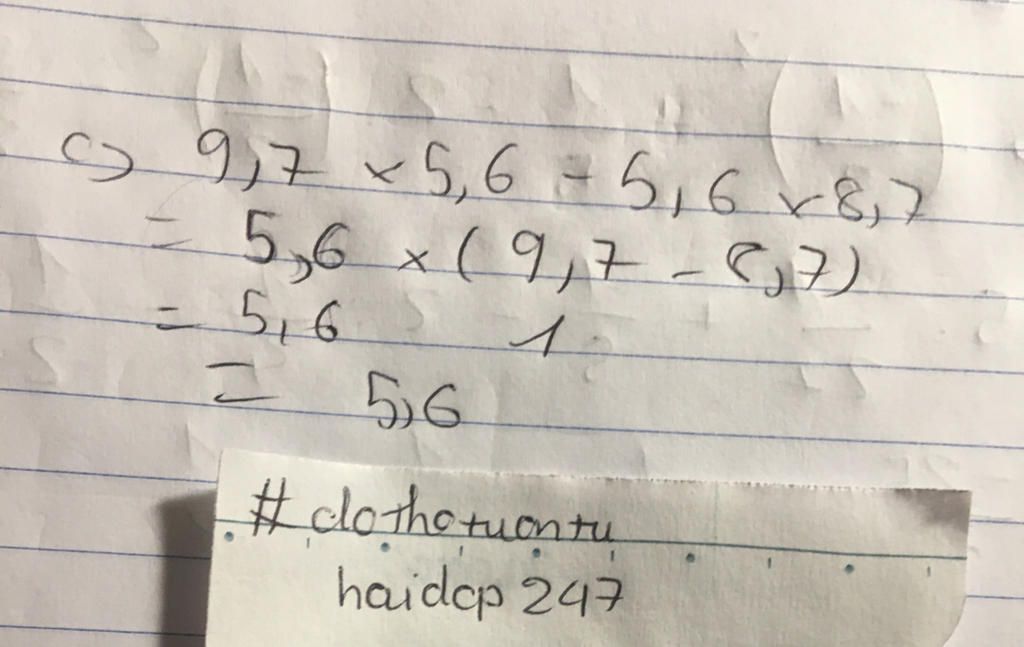 c) 9,7 × 5,6 - 5,6 × 8,7
= 5,6 × (9,7 - 8,7)
= 5,6 1
= 5,6
# dothotuontu
haidcp 247